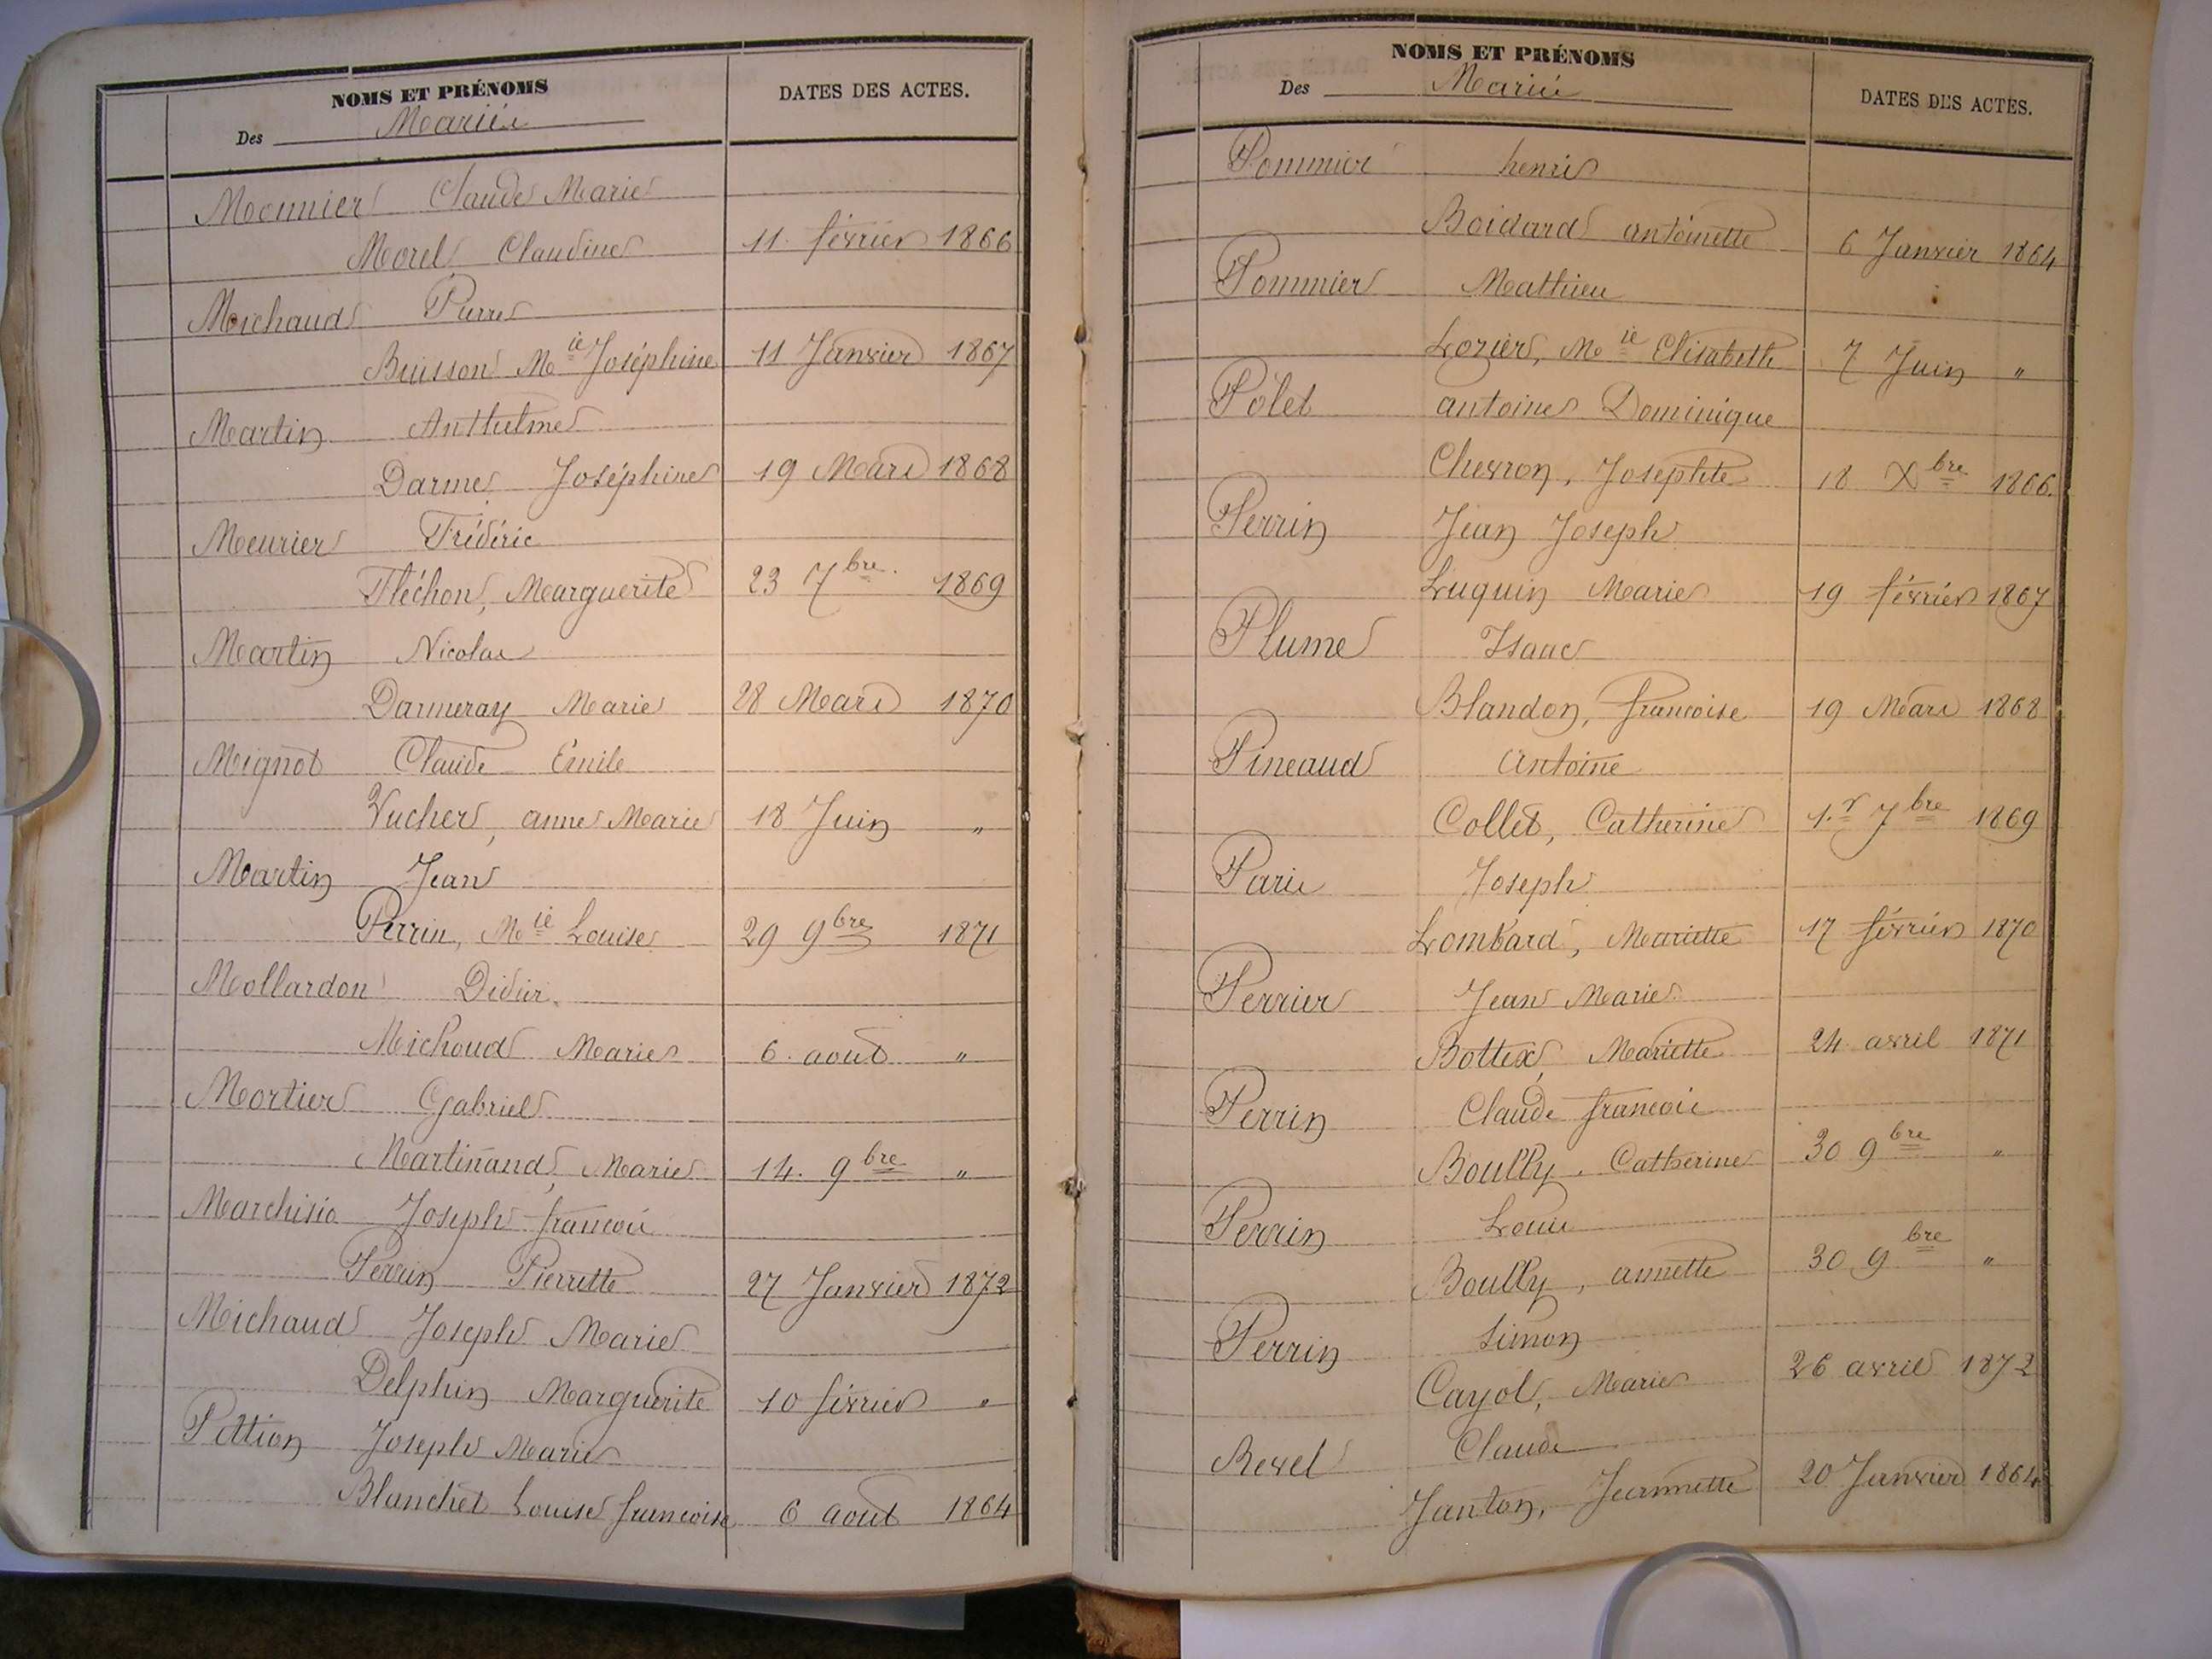 NOMS ET PRÉNOMS
DATES DES ACTES.
Des Mariés
Meunier Claude Marie
Morel, Claudine 11 février 1866
Michaud Pierre
Buisson Mie Joséphine 11 Janvier 1867
Martin Anthelme
Darme, Joséphine 19 Mars 1868
Meurier Frédéric
Fléchon, Marguerite 23 7bre. 1869
Martin Nicolas
Darmeray Marie 28 Mars 1870
Mignot Claude Émile
Vucher, anne Marie 18 Juin "
Martin Jean
Perrin, Mie Louise 29 9bre 1871
Mollardon Didier
Michoud Marie 6 aout "
Mortier Gabriel
Martinand, Marie 14. 9bre "
Marchisio Joseph francois
Perrin Pierrette 27 Janvier 1872
Michaud Joseph Marie
Delphin Marguerite 10 février "
Pottion Joseph Marie
Blanchet Louise francoise 6 aout 1864
NOMS ET PRÉNOMS
DATES DES ACTES.
Des Mariés
Pommier henri
Boidard antoinette 6 Janvier 1864
Pommier Mathieu
Lozier, Mie Elisabeth 7 Juin "
Polet antoine Dominique
Chevron, Josephte 18 Xbre 1866.
Perrin Jean Joseph
Luquin Marie 19 février 1867
Plume Isaac
Blandon, francoise 19 Mars 1868
Pineaud antoine
Collet, Catherine 1.r 7bre 1869
Paris Joseph
Lombard, Mariette 17 février 1870
Perrier Jean Marie
Bottex, Mariette 24 avril 1871
Perrin Claude francois
Boully, Catherine 30 9bre "
Perrin Louis
Boully, annette 30 9bre "
Perrin Simon
Cayol, Marie 26 avril 1872
Revel Claude
Janton, Jeannette 20 Janvier 1864